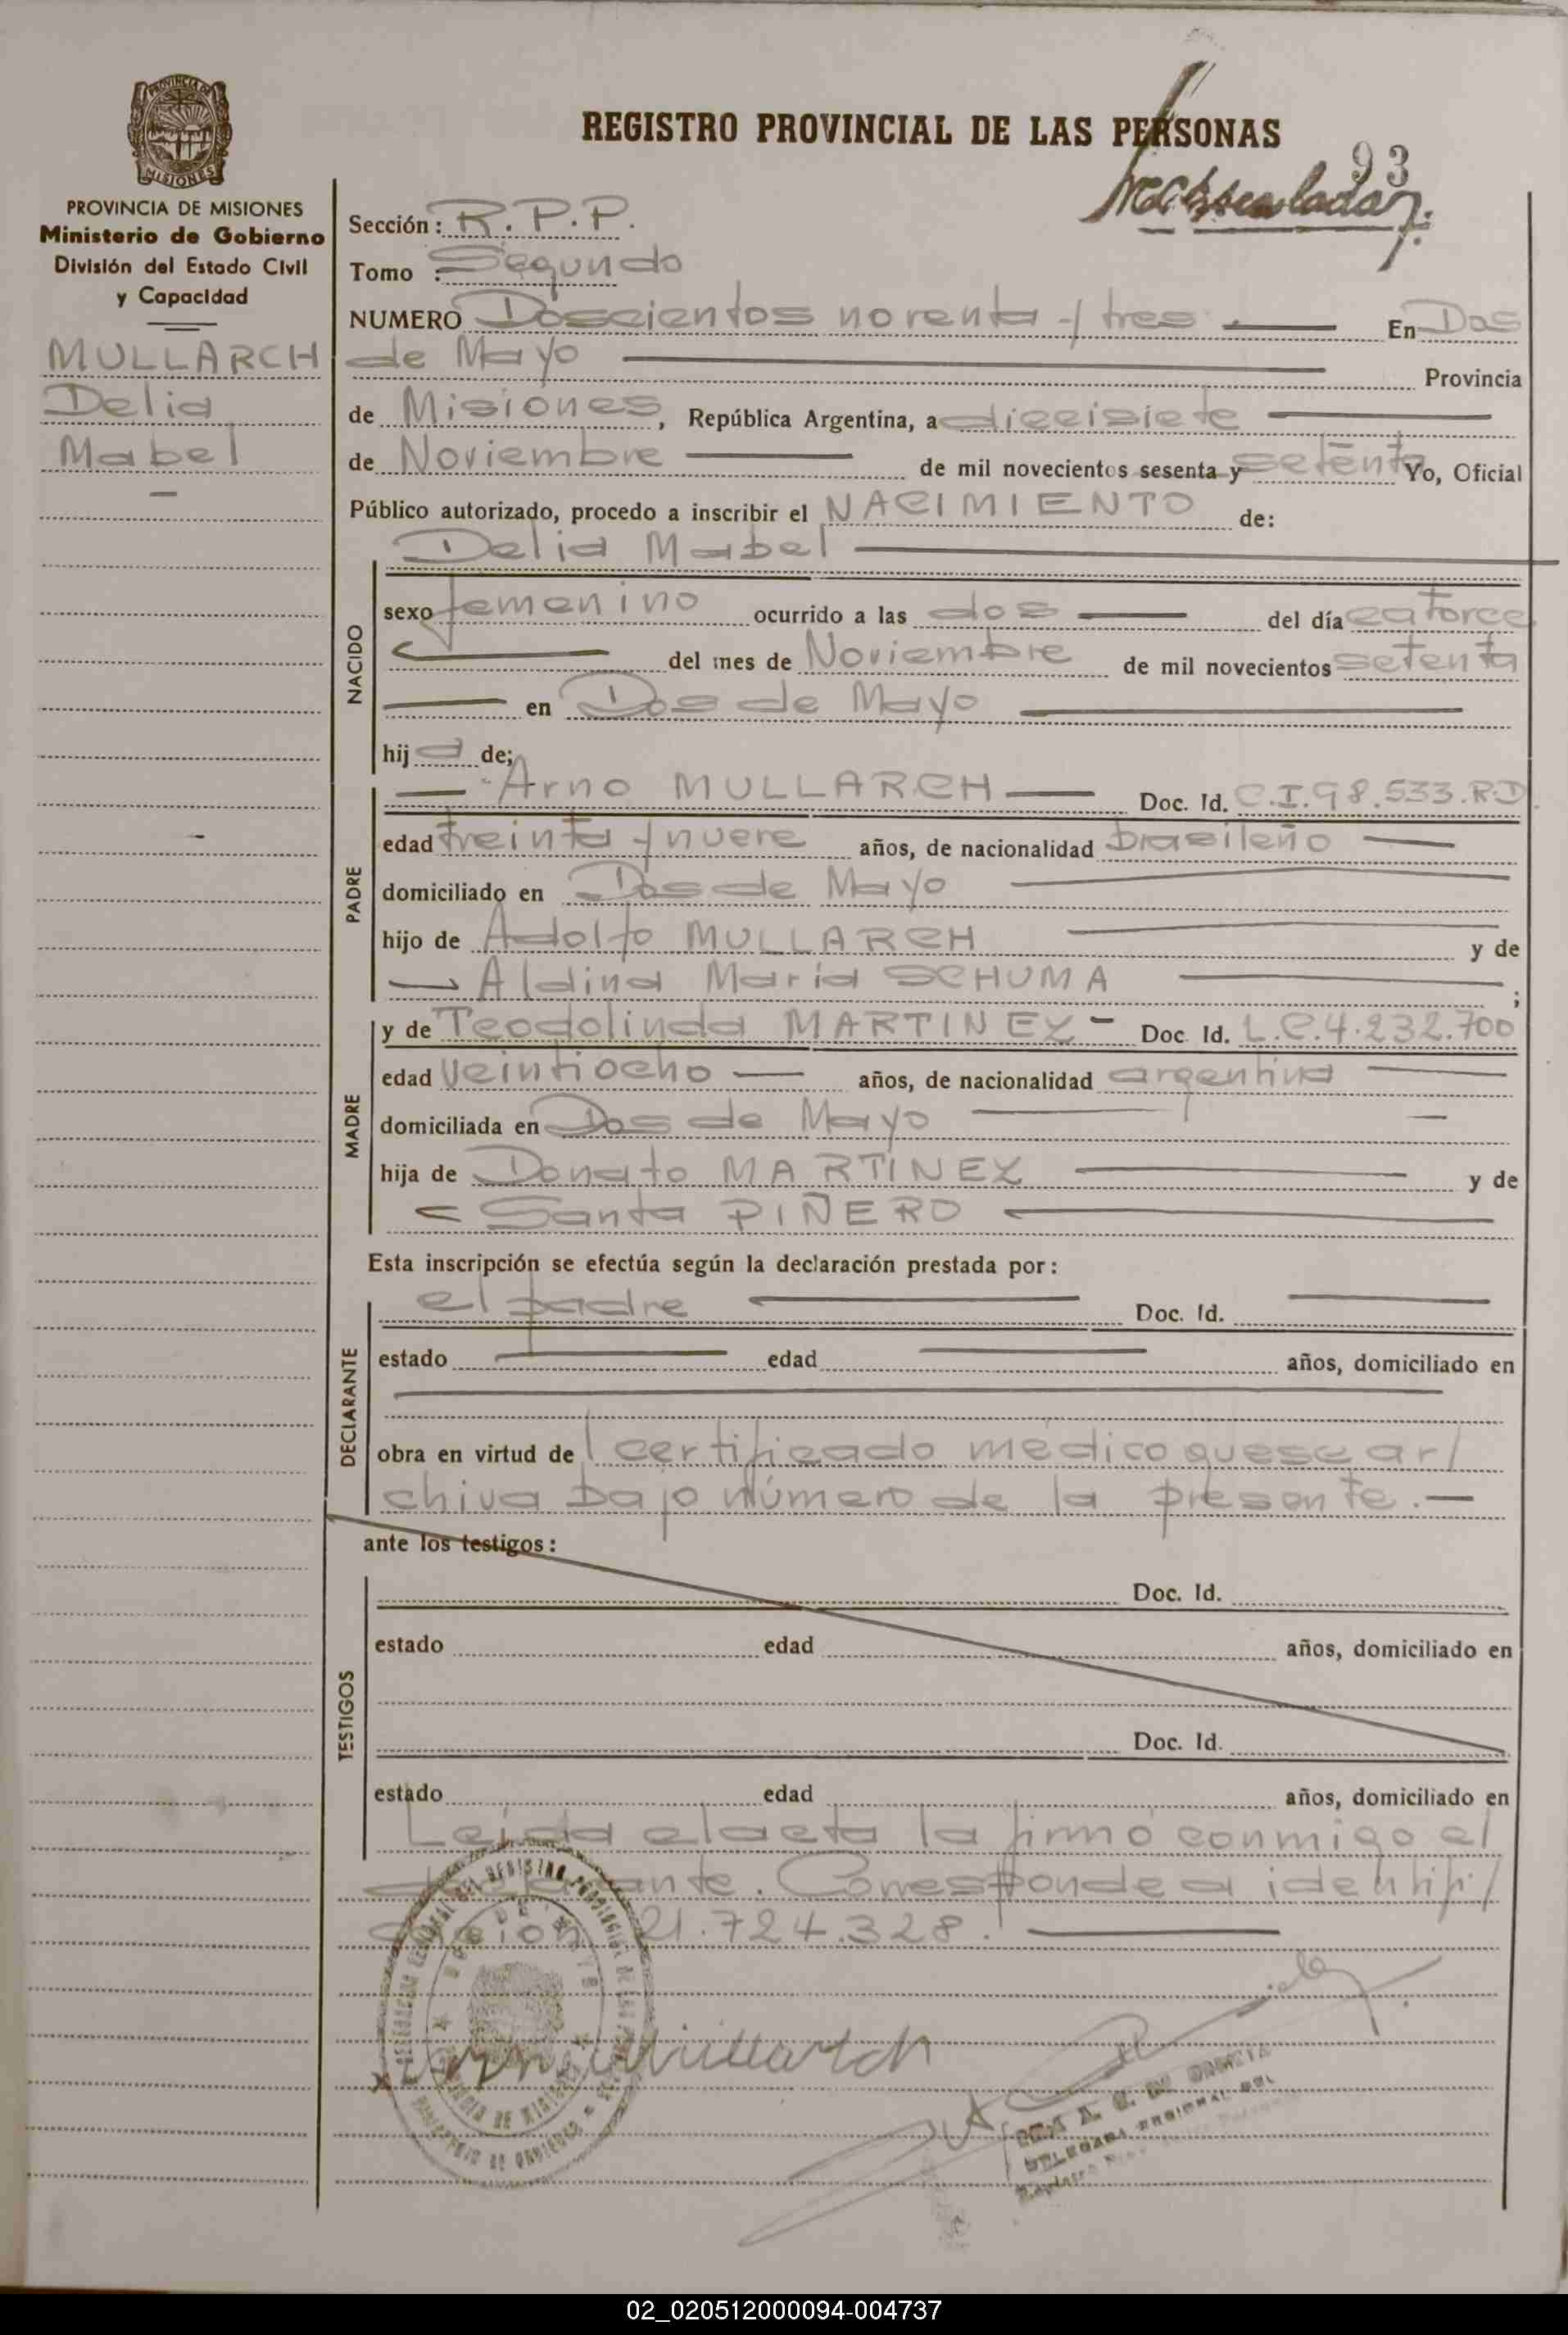 REGISTRO PROVINCIAL DE LAS PERSONAS
93
PROVINCIA DE
MISIONES
PROVINCIA DE MISIONES
Ministerio de Gobierno
División del Estado Civil
y Capacidad
MULLARCH
Delia
Mabel
Sección: R.P.P.
Tomo : Segundo
NUMERO Doscientos noventa y tres. En Dos
de Mayo Provincia
de Misiones, República Argentina, a diecisiete
de Noviembre de mil novecientos sesenta y setenta Yo, Oficial
Público autorizado, procedo a inscribir el NACIMIENTO de:
Delia Mabel
NACIDO
sexo femenino ocurrido a las dos del día catorce
del mes de Noviembre de mil novecientos setenta
en Dos de Mayo
hij a de;
PADRE
Arno MULLARCH Doc. Id. C.I.98.533.R.D.
edad treinta y nueve años, de nacionalidad brasileño
domiciliado en Dos de Mayo
hijo de Adolfo MULLARCH y de
Aldina María SCHUMA ;
MADRE
y de Teodolinda MARTINEZ - Doc. Id. L.C.4.232.700
edad veintiocho años, de nacionalidad argentina
domiciliada en Dos de Mayo
hija de Donato MARTINEZ y de
Santa PIÑERO
Esta inscripción se efectúa según la declaración prestada por:
DECLARANTE
el padre Doc. Id.
estado edad años, domiciliado en
obra en virtud de l certificado medico que se ar/
chiva bajo número de la presente.-
ante los testigos:
TESTIGOS
Doc. Id.
estado edad años, domiciliado en
Doc. Id.
estado edad años, domiciliado en
Leída el acta la firmó conmigo el
declarante. Corresponde a identifi/
cación 21.724.328.
x Arno Mullarch
DELEGADA REGIONAL DEL
02_020512000094-004737